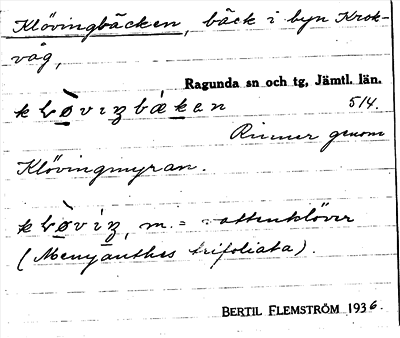 Klövingbäcken, bäck i byn Krok-
våg,
Ragunda sn och tg, Jämtl. län.
5/4.
Rinner genom
Klövingmyran.
m. = vattenklöver
(Menyanthes trifoliata).
BERTIL FLEMSTRÖM 1936.